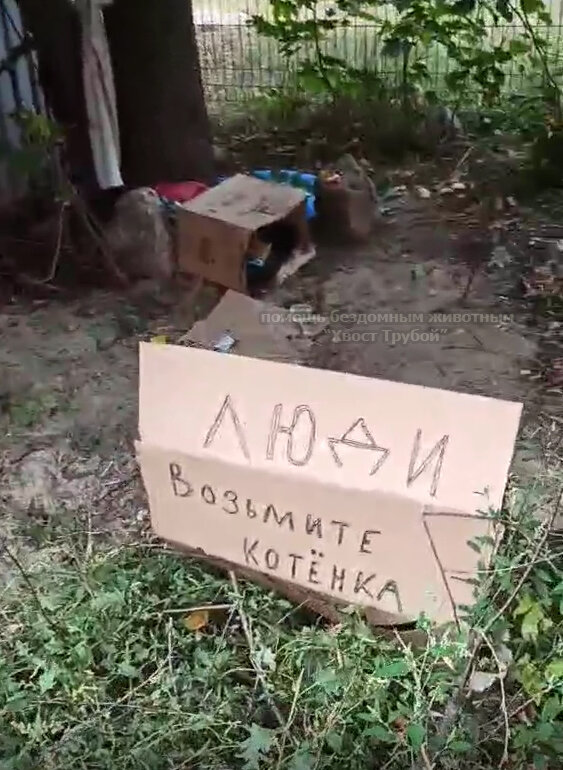 помощь бездомным животным
"Хвост Трубой"
ЛЮДИ
ВОЗЬМИТЕ
КОТЁНКА